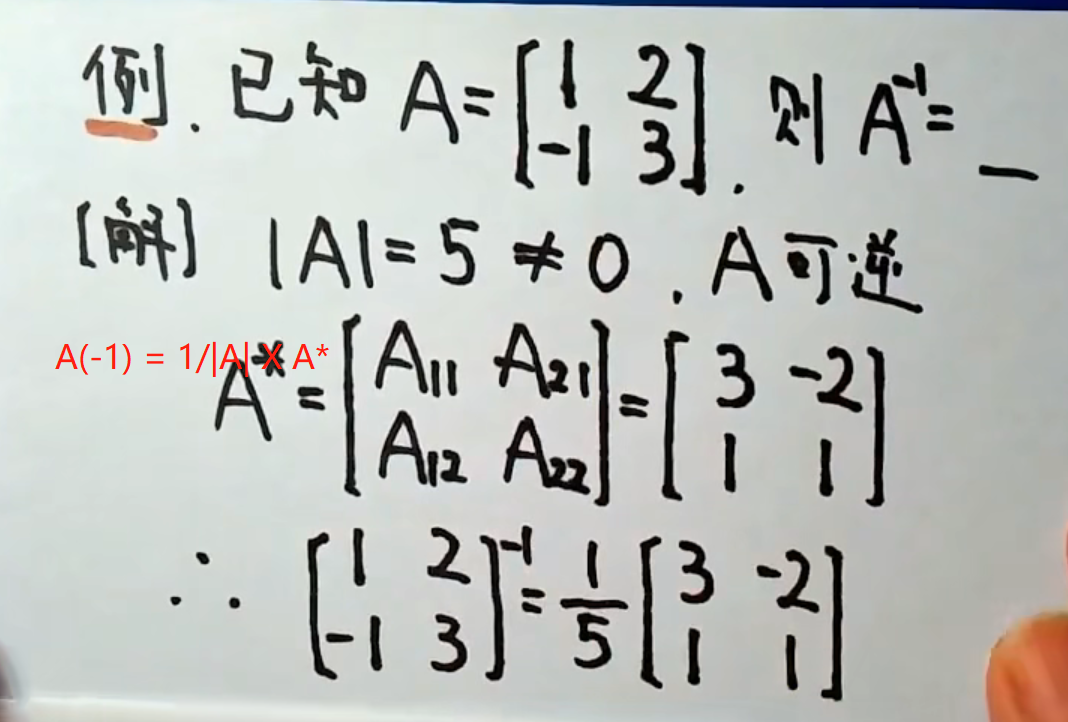 例. 已知 A = [1 2; -1 3]. 则 A⁻¹ = _
[解] |A| = 5 ≠ 0. A可逆
A(-1) = 1/|A| X A*
A* = [A₁₁ A₂₁; A₁₂ A₂₂] = [3 -2; 1 1]
∴ [1 2; -1 3]⁻¹ = 1/5 [3 -2; 1 1]